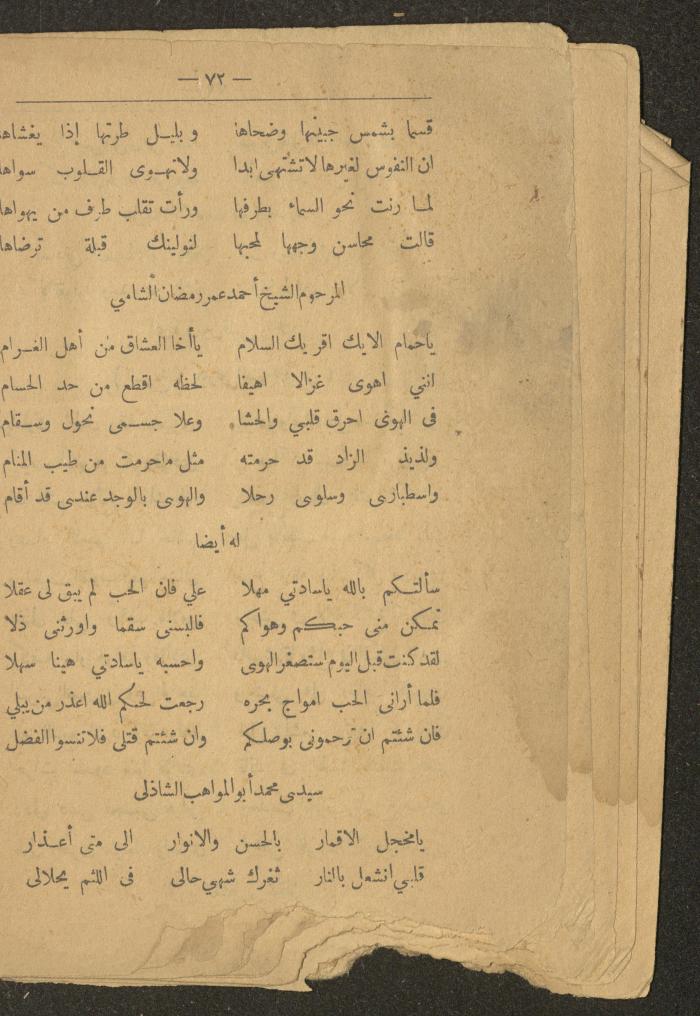 — ٧٢ —
قسما بشمس جبينها وضحاها وبليـل طرتها إذا يغشاها
ان النفوس لغيرها لا تشتهى ابدا ولاتهـوى القـلوب سواها
لمـا رنت نحو السماء بطرفها ورأت تقلب طرف من يهواها
قالت محاسن وجهها لمحبها لنولينك قبلة ترضاها
المرحوم الشيخ أحمد عمر رمضان الشامي
ياحمام الايك اقريك السلام ياأخا العشاق من أهل الغـرام
انني اهوى غزالا اهيفا لحظه اقطع من حد الحسام
فى الهوى احرق قلبي والحشا وعلا جسـمى نحول وسـقام
ولذيذ الزاد قد حرمته مثل ماحرمت من طيب المنام
واسطبارى وسلوى رحلا والهوى بالوجد عندى قد أقام
له أيضا
سألتـكم بالله ياسادتي مهلا علي فان الحب لم يبق لى عقلا
تمـكن منى حبكم وهواكم فالبسنى سقما واورثنى ذلا
لقد كنت قبل اليوم استصغر الهوى واحسبه ياسادتي هينا سهلا
فلما أرانى الحب امواج بحره رجعت لحكم الله اعذر من يبلي
فان شئتم ان ترحمونى بوصلـكم وان شئتم قتلى فلاتنسوا الفضل
سيدى محمد أبو المواهب الشاذلى
يامخجل الاقمار بالحسن والانوار الى متى أعـذار
قلبي انشعل بالنار ثغرك شهي حالى فى اللثم يحلالى